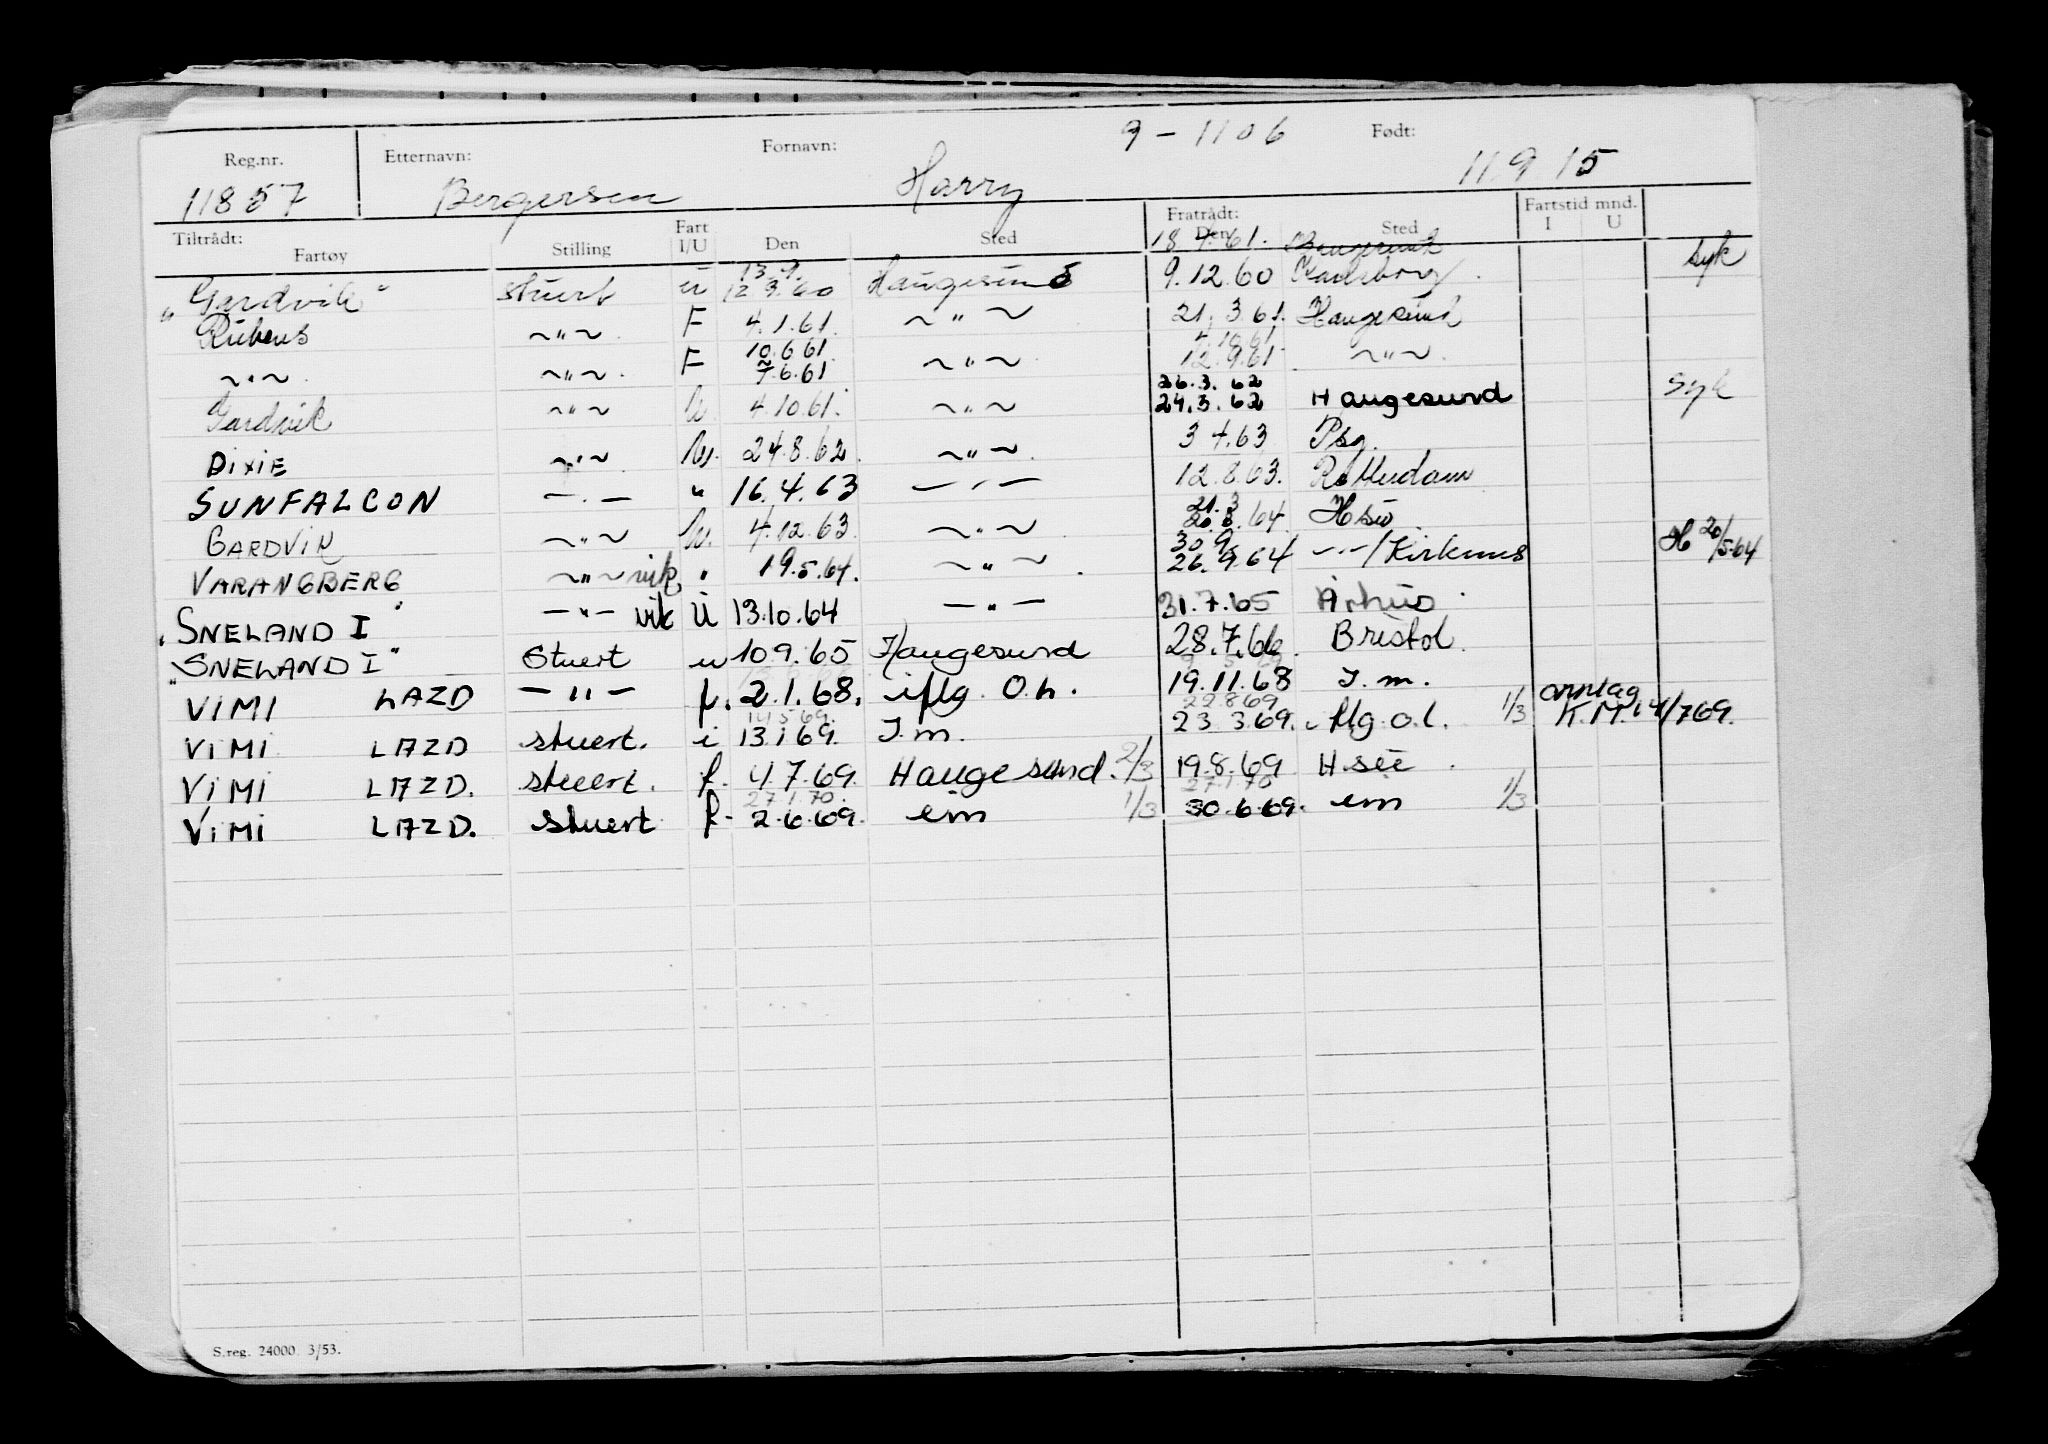 Reg.nr. Etternavn: Fornavn: 9-1106 Født:
11857 Bergersen Harry 11 9 15
Tiltrådt: Fartøy Stilling Fart I/U Den Sted Fratrådt: Den Sted Fartstid mnd. I U
"Gardvik" stuert u 13.9. 12.9.60 Haugesund 9.12.60 syk
Rubens ~"~ F 4.1.61 ~"~ 21.3.61. Haugesund
~"~ ~"~ F 10.6.61 7.6.61 ~"~ 4.10.61 12.9.61 ~"~
Gardvik ~"~ U. 4.10.61. ~"~ 26.3.62 24.3.62 Haugesund syk
DIXIE ~"~ U. 24.8.62. ~"~ 3 4.63 Psg.
SUNFALCON —"— " 16.4.63 —"— 12.8.63. Rotterdam
GARDVIK ~"~ U. 4.12.63. ~"~ 21.3 20.3.64. Hsu
VARANGBERG ~"~ vik " 19.5.64. ~"~ 30.9. 26.9.64 —"—/Kirkenes H 20/5-64
"SNELAND I" —"— vik U 13.10.64 —"— 31.7.65 Århus
"SNELAND I" Stuert u 10 9.65 Haugesund 28.7.66. Bristol
VIMI LAZD —"— f. 2.1.68. iflg. O.h. 19.11.68 I.m.
VIMI LAZD stuert. i 13.1 69. I.m. 22.8.69 23 3.69. iflg. o.l. 1/3 K.M. 4/769.
VIMI LAZD. stuert. f. 4.7.69. Haugesund. 2/3 19.8.69 H.
VIMI LAZD. Stuert f. 27.1.70. 2.6.69. em 1/3 27.1.70 30.6.69. em 1/3
S.reg. 24000. 3/53.